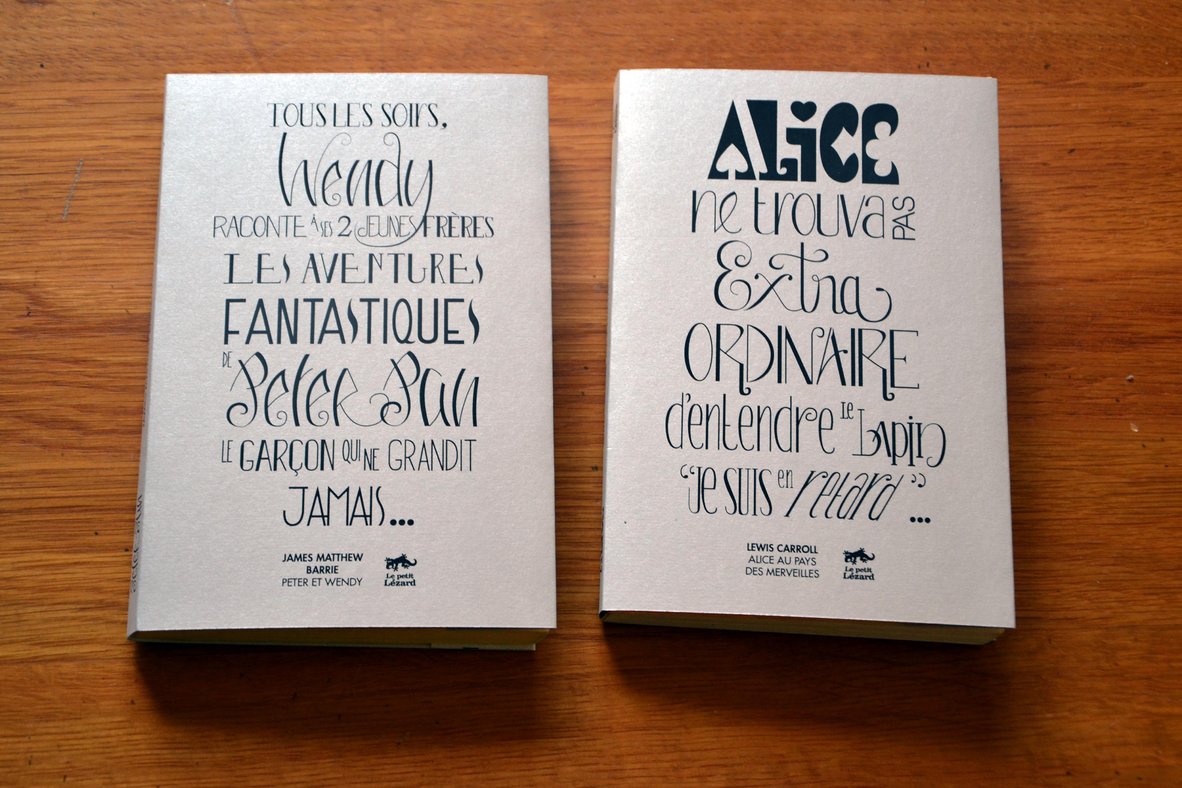 TOUS LES SOIRS,
Wendy
RACONTE À SES 2 JEUNES FRÈRES
LES AVENTURES
FANTASTIQUES
DE
Peter Pan
LE GARÇON QUI NE GRANDIT
JAMAIS...
JAMES MATTHEW
BARRIE
PETER ET WENDY
Le petit
Lézard
ALiCE
ne trouva PAS
Extra
ORDINAIRE
d'entendre LE LAPIN
“JE SUIS en retard” ...
LEWIS CARROLL
ALICE AU PAYS
DES MERVEILLES
Le petit
Lézard